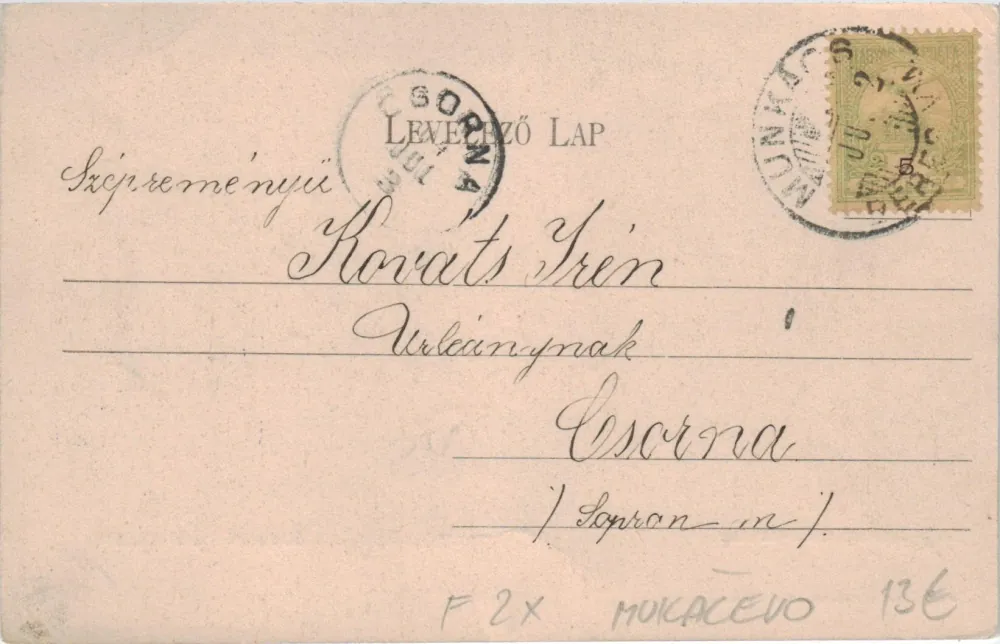 MUNKÁCS
BEREG VM
JUL 2
5
CSORNA
JUL 3
LEVELEZŐ LAP
Szépreményű
Kováts Irén
Urleánynak
Csorna
/Sopron m/
F 2x MUKAČEVO 13€